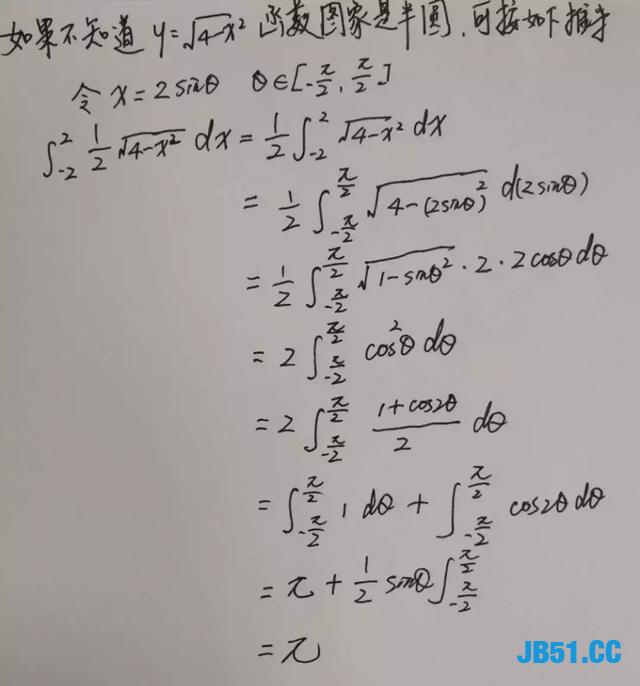 如果不知道 y=√4-x² 函数图象是半圆,可按如下推导
令 x=2sinθ θ∈[-π/2, π/2]
∫_{-2}^{2} 1/2 √4-x² dx = 1/2 ∫_{-2}^{2} √4-x² dx
= 1/2 ∫_{-π/2}^{π/2} √4-(2sinθ)² d(2sinθ)
= 1/2 ∫_{-π/2}^{π/2} √1-sinθ² · 2 · 2cosθ dθ
= 2 ∫_{-π/2}^{π/2} cos²θ dθ
= 2 ∫_{-π/2}^{π/2} 1+cos2θ/2 dθ
= ∫_{-π/2}^{π/2} 1 dθ + ∫_{-π/2}^{π/2} cos2θ dθ
= π + 1/2 sinθ ∫_{-π/2}^{π/2}
= π
JB51.CC